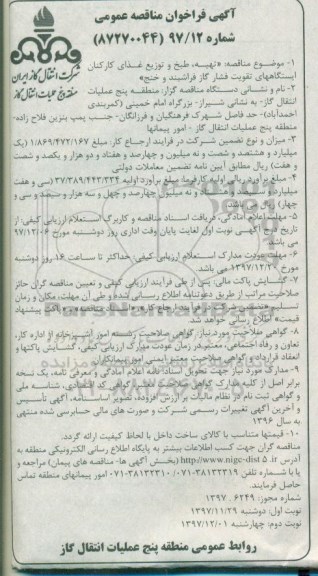 آگهی فراخوان مناقصه عمومی
شماره ۹۷/۱۲ (۸۷۲۷۰۰۴۴)
شرکت انتقال گاز ایران
منطقه پنج عملیات انتقال گاز
۱- موضوع مناقصه: «تهیه، طبخ و توزیع غذای کارکنان
ایستگاههای تقویت فشار گاز فراشبند و خنج»
۲- نام و نشانی دستگاه مناقصه گزار: منطقه پنج عملیات
انتقال گاز- به نشانی شیراز- بزرگراه امام خمینی (کمربندی
احمدآباد)- حد فاصل شهرک فرهنگیان و فرزانگان- جنب پمپ بنزین فلاح زاده-
منطقه پنج عملیات انتقال گاز - امور پیمانها
۳- میزان و نوع تضمین شرکت در فرآیند ارجاع کار، مبلغ ۱/۸۶۹/۴۷۲/۱۶۷ (یک
میلیارد و هشتصد و شصت و نه میلیون و چهارصد و هفتاد و دو هزار و یکصد و شصت
و هفت) ریال مطابق آیین نامه تضمین معاملات دولتی
۴- مبلغ برآورد ریالی اولیه کارفرما: مبلغ برآورد اولیه ۳۷/۳۸۹/۴۴۳/۳۳۴ (سی و هفت
میلیارد و سیصد و هشتاد و نه میلیون و چهارصد و چهل و سه هزار و سیصد و سی و
چهار) ریال می باشد.
۵- مهلت اعلام آمادگی، دریافت اسناد مناقصه و کاربرگ استعلام ارزیابی کیفی: از
تاریخ درج آگهی نوبت اول لغایت پایان وقت اداری روز دوشنبه مورخ ۹۷/۱۲/۰۶
می باشد.
۶- مهلت عودت مدارک استعلام ارزیابی کیفی: حداکثر تا ساعت ۱۶ روز دوشنبه
مورخ ۱۳۹۷/۱۲/۲۰ می باشد.
۷- گشایش پاکت مالی: پس از طی فرآیند ارزیابی کیفی و تعیین مناقصه گران حائز
صلاحیت مراتب از طریق دعوتنامه اطلاع رسانی شده و طی آن مهلت، مکان و زمان
قیمت» اطلاع رسانی خواهد شد.
۸- گواهی صلاحیت مورد نیاز: گواهی صلاحیت رشته امور آشپزخانه از اداره کار،
تعاون و رفاه اجتماعی، معتبر در زمان عودت مدارک ارزیابی کیفی، گشایش پاکتها و
انعقاد قرارداد و گواهی صلاحیت معتبر ایمنی امور پیمانکاران.
۹- مدارک مورد نیاز جهت تحویل اسناد: نامه اعلام آمادگی و معرفی نامه، یک نسخه
برابر اصل از کلیه مدارک گواهی صلاحیت معتبر، گواهی کد اقتصادی، شناسه ملی
و گواهی ثبت نام در نظام مالیات بر ارزش افزوده، تصویر اساسنامه، آگهی تأسیس
و آخرین آگهی تغییرات رسمی شرکت و صورت های مالی حسابرسی شده منتهی
به سال ۱۳۹۶
۱۰- قیمتها متناسب با کالای ساخت داخل با لحاظ کیفیت ارائه گردد.
مناقصه گران جهت کسب اطلاعات بیشتر به پایگاه اطلاع رسانی الکترونیکی منطقه به
آدرس http://www.nigc-dist5.ir (بخش آگهی ها- مناقصه های پیمان) مراجعه و
یا با شماره تلفن ۳۸۱۳۲۳۱۹-۰۷۱ / ۳۸۱۳۲۳۱۰-۰۷۱ امور پیمانهای منطقه تماس
حاصل فرمایند.
شماره مجوز: ۱۳۹۷. ۶۲۴۹
نوبت اول: دوشنبه ۱۳۹۷/۱۱/۲۹
نوبت دوم: چهارشنبه ۱۳۹۷/۱۲/۰۱
روابط عمومی منطقه پنج عملیات انتقال گاز